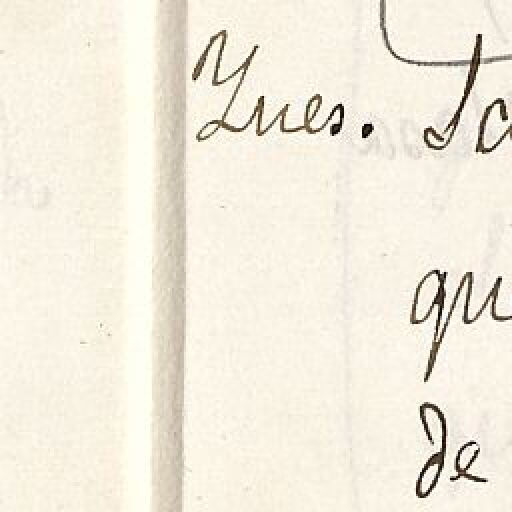 Ynes. Sa
qu
de